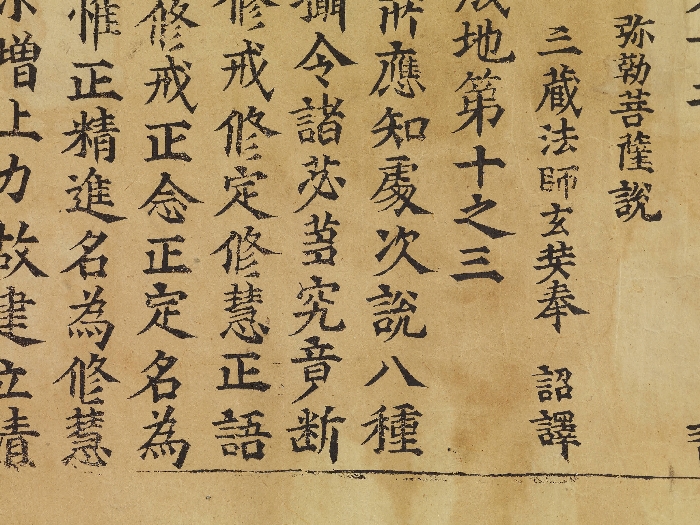 弥勒菩薩說
三藏法師玄奘奉 詔譯
地第十之三
所應知處次說八種
攝令諸苾蒭究竟断
修戒修定修慧正語
修戒正念正定名為
惟正精進名為修慧
增上力故建立清